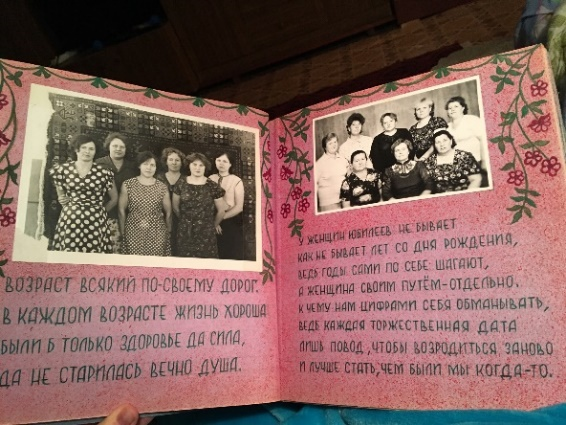 ВОЗРАСТ ВСЯКИЙ ПО-СВОЕМУ ДОРОГ.
В КАЖДОМ ВОЗРАСТЕ ЖИЗНЬ ХОРОША
БЫЛИ Б ТОЛЬКО ЗДОРОВЬЕ ДА СИЛА,
ДА НЕ СТАРИЛАСЬ ВЕЧНО ДУША.
У ЖЕНЩИН ЮБИЛЕЕВ НЕ БЫВАЕТ
КАК НЕ БЫВАЕТ ЛЕТ СО ДНЯ РОЖДЕНИЯ,
ВЕДЬ ГОДЫ САМИ ПО СЕБЕ ШАГАЮТ,
А ЖЕНЩИНА СВОИМ ПУТЁМ-ОТДЕЛЬНО.
К ЧЕМУ НАМ ЦИФРАМИ СЕБЯ ОБМАНЫВАТЬ,
ВЕДЬ КАЖДАЯ ТОРЖЕСТВЕННАЯ ДАТА
ЛИШЬ ПОВОД, ЧТОБЫ ВОЗРОДИТЬСЯ ЗАНОВО
И ЛУЧШЕ СТАТЬ, ЧЕМ БЫЛИ МЫ КОГДА-ТО.